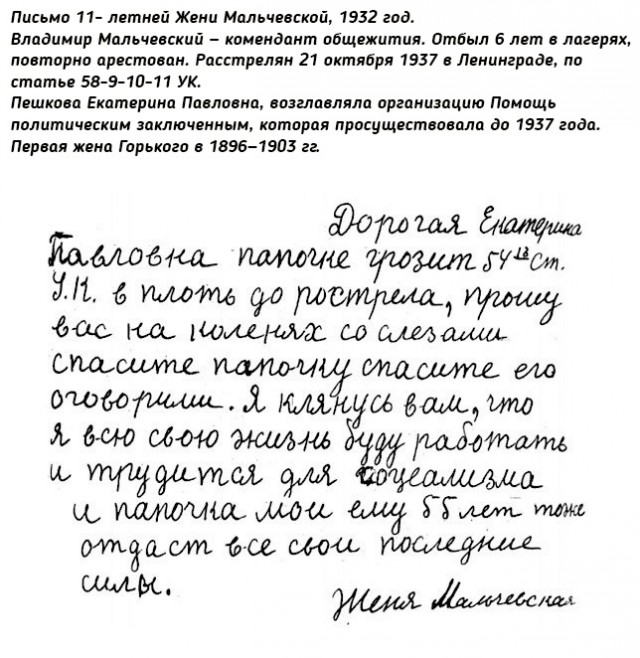 Письмо 11- летней Жени Мальчевской, 1932 год.
Владимир Мальчевский – комендант общежития. Отбыл 6 лет в лагерях,
повторно арестован. Расстрелян 21 октября 1937 в Ленинграде, по
статье 58-9-10-11 УК.
Пешкова Екатерина Павловна, возглавляла организацию Помощь
политическим заключенным, которая просуществовала до 1937 года.
Первая жена Горького в 1896–1903 гг.
Дорогая Екатерина
Павловна папочке грозит 54 13 ст.
У.К. в плоть до рострела, прошу
вас на коленях со слезами
спасите папочку спасите его
оговорили. Я клянусь вам, что
я всю свою жизнь буду работать
и трудится для соцеализма
и папочка мои ему 55 лет тоже
отдаст все свои последние
силы.
Женя Мальчевская